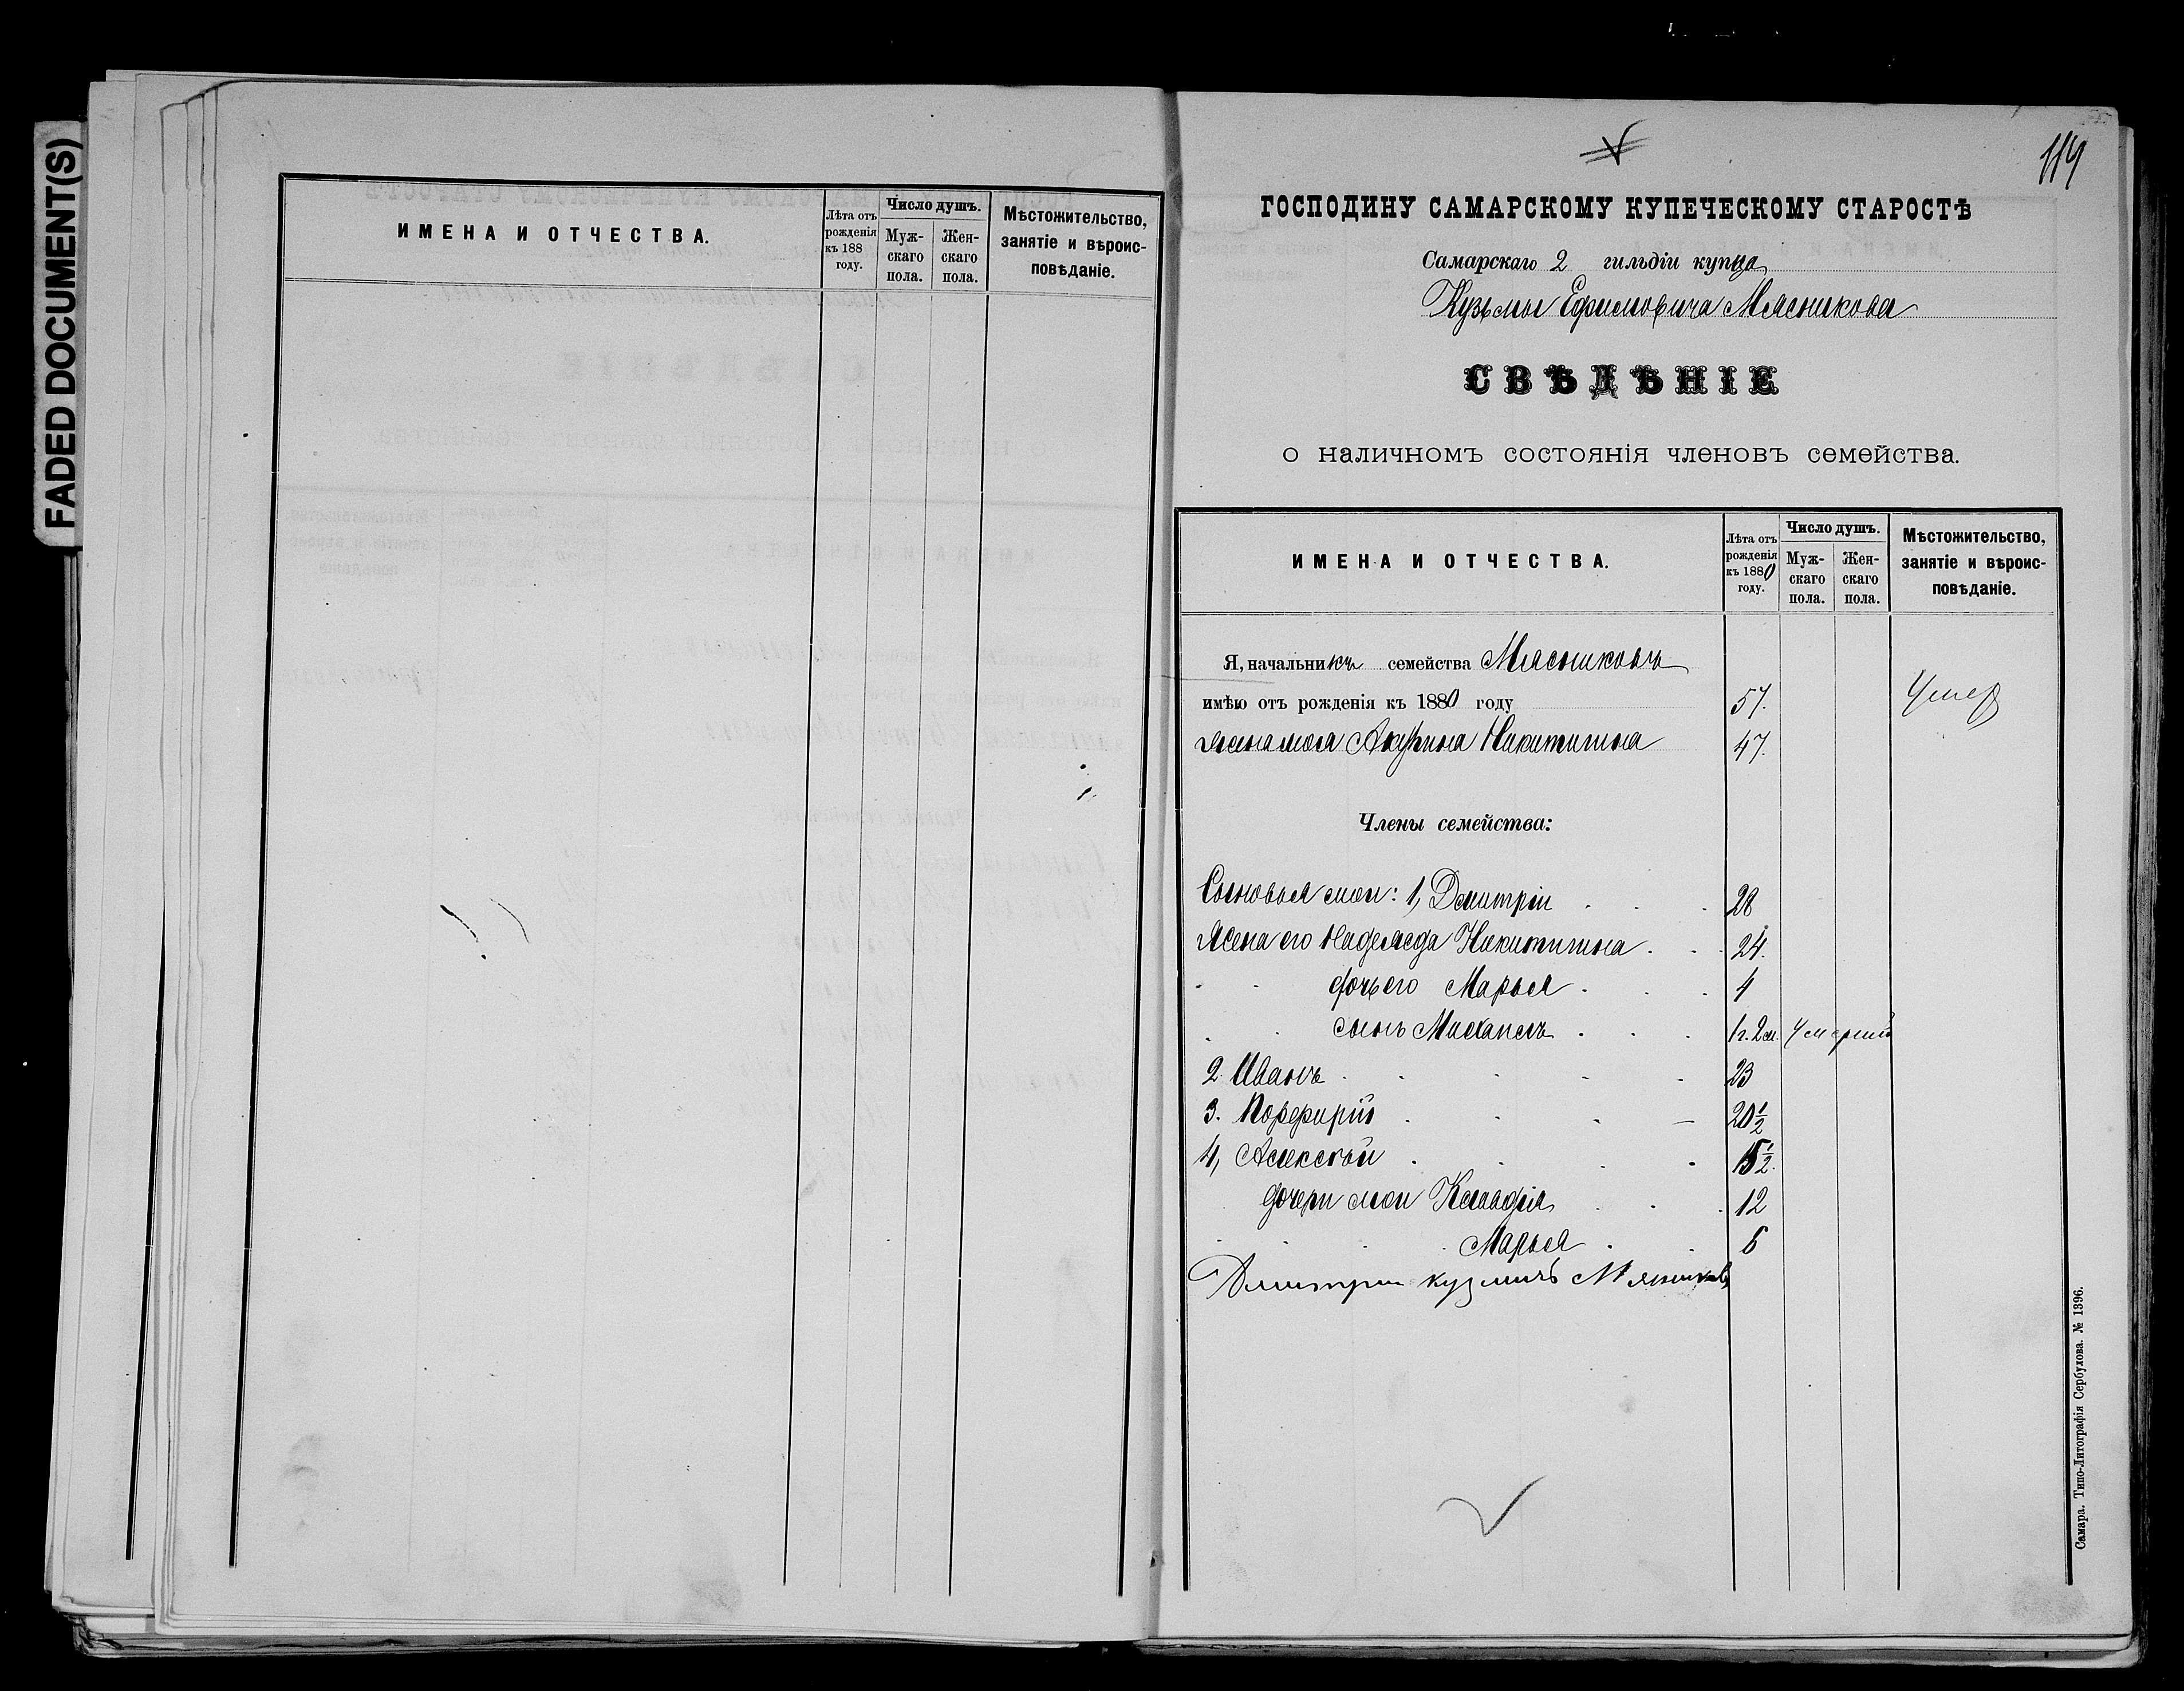 FADED DOCUMENT(S)
ИМЕНА И ОТЧЕСТВА.
Лѣта отъ рожденія къ 188 году.
Число душъ.
Мужскаго пола.
Женскаго пола.
Мѣстожительство, занятіе и вѣроисповѣданіе.
114
ГОСПОДИНУ САМАРСКОМУ КУПЕЧЕСКОМУ СТАРОСТѢ
Самарскаго 2 гильдіи купца
Кузьмы Ефимовича Мясникова
СВѢДѢНІЕ
о наличномъ состоянія членовъ семейства.
ИМЕНА И ОТЧЕСТВА.
Лѣта отъ рожденія къ 1880 году.
Число душъ.
Мужскаго пола.
Женскаго пола.
Мѣстожительство, занятіе и вѣроисповѣданіе.
Я, начальникъ семейства Мясниковъ
имѣю отъ рожденія къ 1880 году 57. Умер
жена моя Акулина Никитишна 47.
Члены семейства:
Сыновья мои: 1, Дмитріи 28
Жена его Надежда Никитишна 24.
дочь его Марья 4
сынъ Михаилъ 1 г. 2 м. Умерший
2. Иванъ 23
3. Порфирій 20 1/2
4, Алексѣй 15 1/2.
дочери мои Клавдія 12
Марья 6
Дмитрии кузмичъ Мясников
Самара. Типо-Литографія Сербулова. № 1396.